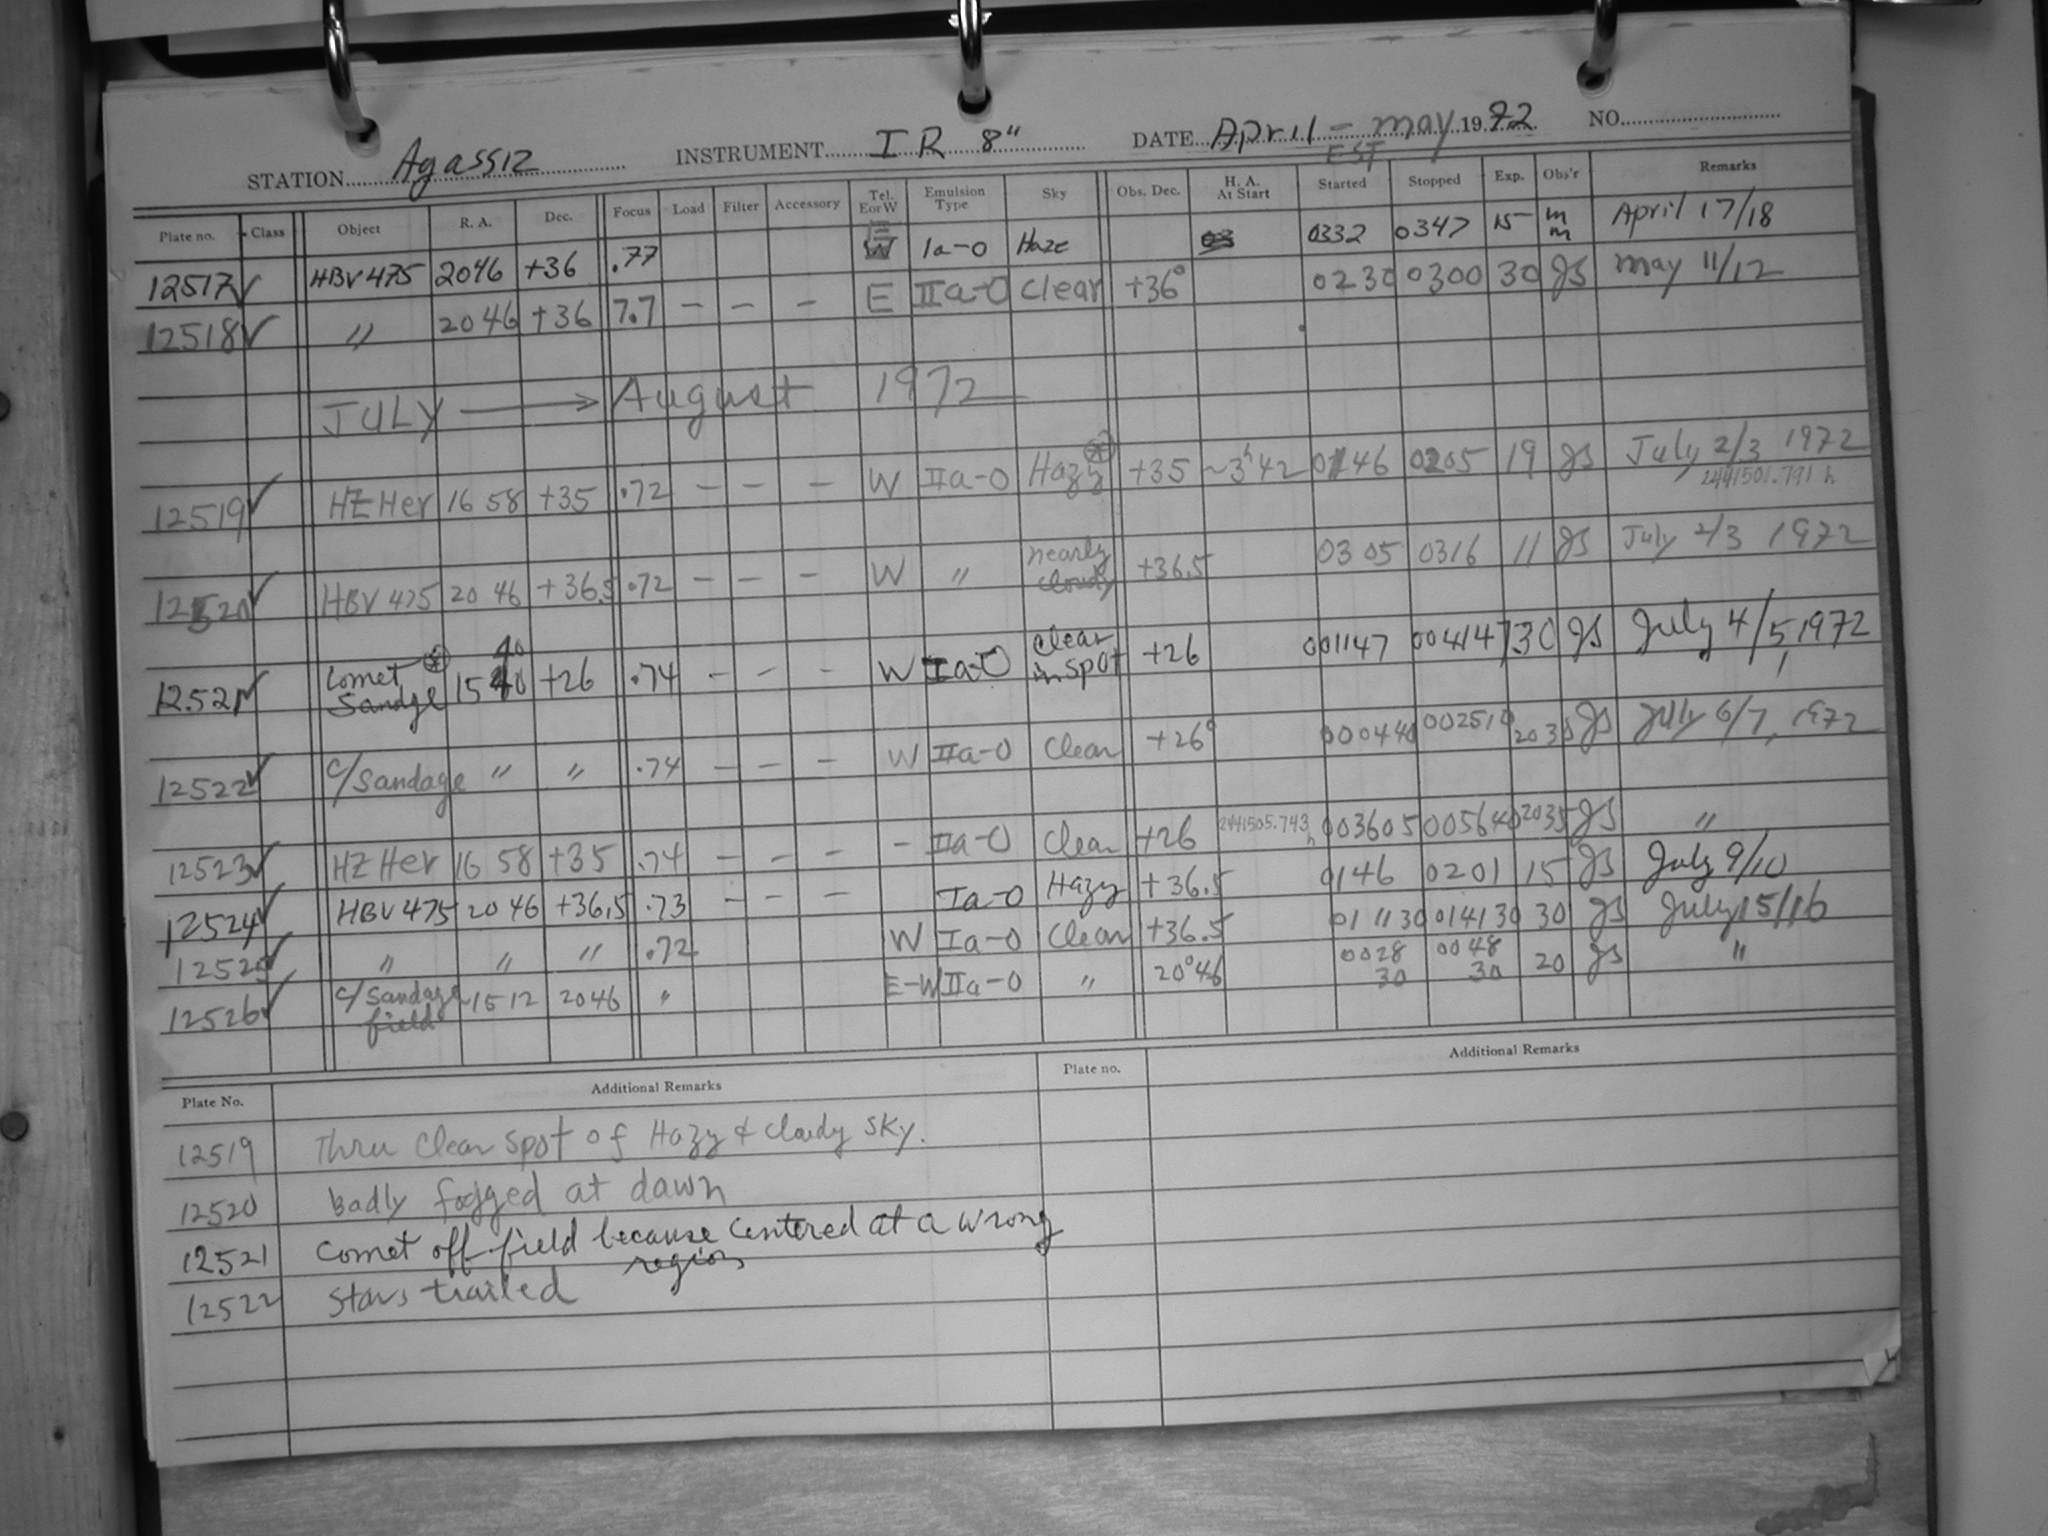 STATION Agassiz INSTRUMENT I R 8" DATE April - May 1972 NO.
EST
Plate no. Class Object R. A. Dec. Focus Load Filter Accessory Tel. E or W Emulsion Type Sky Obs. Dec. H. A. At Start Started Stopped Exp. Obs'r Remarks
12517 ✓ HBV 475 2046 +36 .77 E Ia-O Haze 0332 0347 15 mm April 17/18
12518 ✓ " 20 46 +36 7.7 - - - E IIa-O Clear +36° 0230 0300 30 JS May 11/12
JULY → August 1972
12519 ✓ HZ Her 16 58 +35 .72 - - - W IIa-O Hazy * +35 ~3h42 0146 0205 19 JS July 2/3 1972
2441501.791 h
12520 ✓ HBV 475 20 46 +36.5 .72 - - - W " nearly cloudy +36.5 0305 0316 11 JS July 2/3 1972
12521 ✓ Comet * Sandge 15 40 +26 .74 - - - W IIa-O clear in spot +26 001147 004147 30 JS July 4/5, 1972
12522 ✓ c/Sandage " " .74 - - - W IIa-O Clear +26° 000440 002510 20 30 JS July 6/7, 1972
12523 ✓ HZ Her 16 58 +35 .74 - - - - IIa-O Clear +26 2441505.743 h 003605 005640 2035 JS "
12524 ✓ HBV 475 20 46 +36.5 .73 - - - Ia-O Hazy +36.5 0146 0201 15 JS July 9/10
12525 ✓ " " " .72 W Ia-O Clear +36.5 011130 014130 30 JS July 15/16
12526 ✓ c/Sandage field 15 12 2046 " E-W IIa-O " 20°46 0028 30 0048 30 20 JS "
Plate No. Additional Remarks Plate no. Additional Remarks
12519 Thru Clear spot of Hazy & Cloudy sky.
12520 badly fogged at dawn
12521 Comet off-field because centered at a wrong
region
12522 Stars trailed